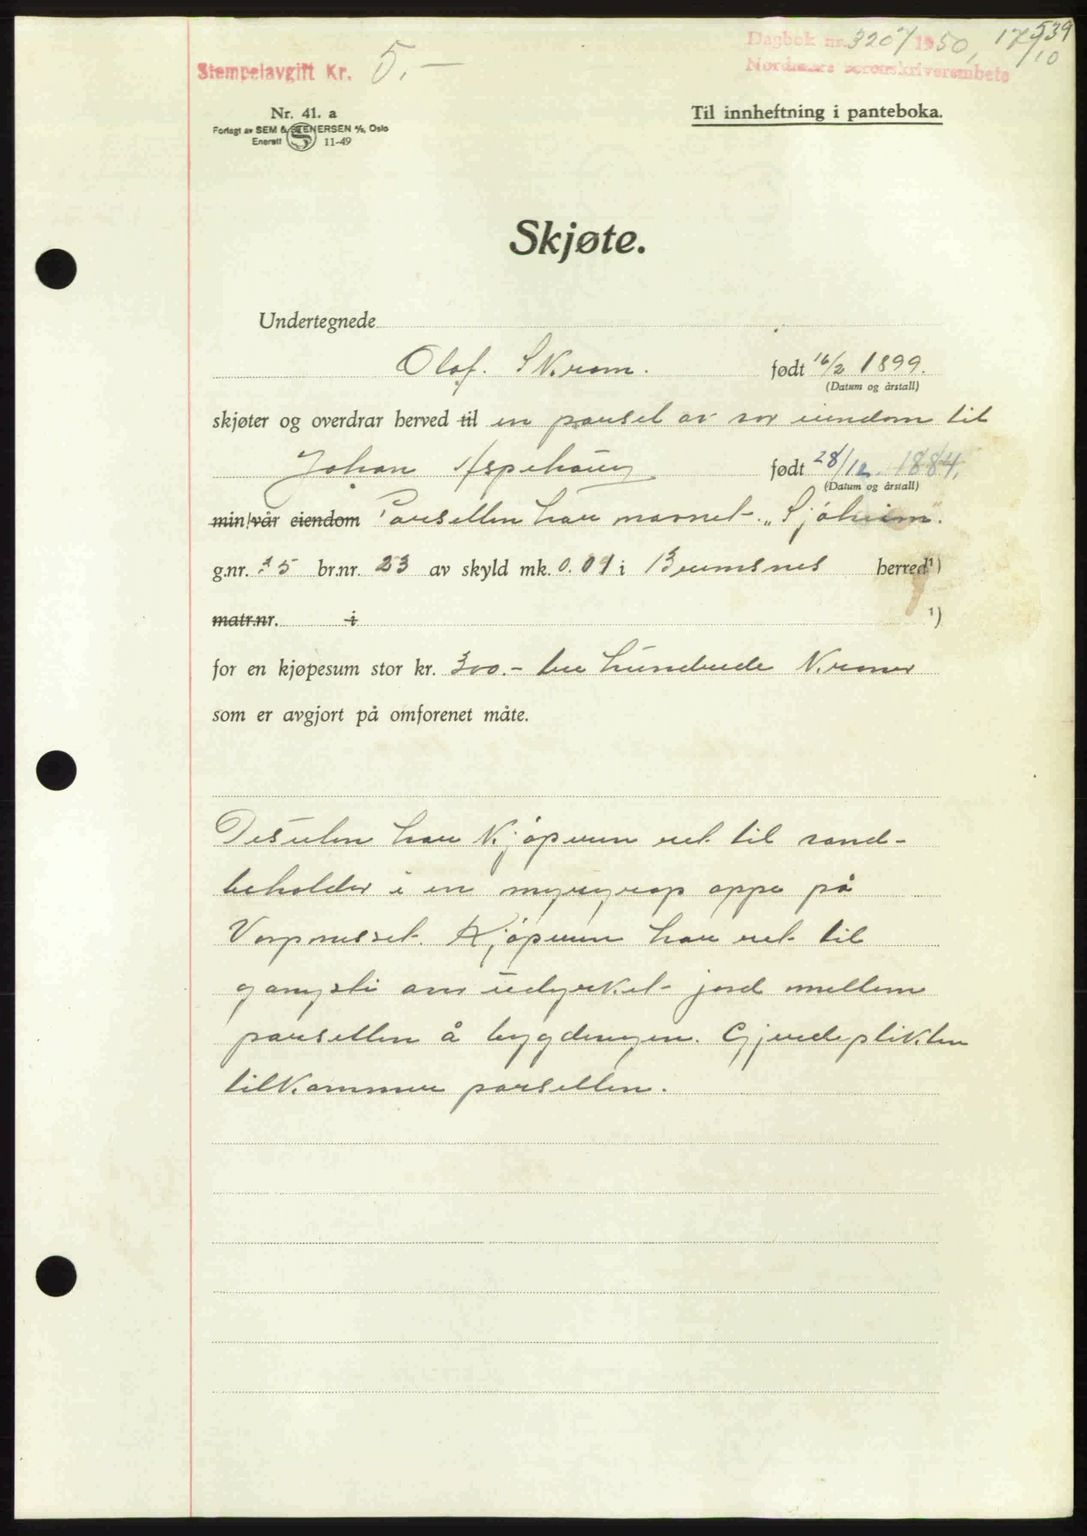 539
Dagbok nr. 3207 1950, 17/10
Nordmøre sorenskriverembete
Stempelavgift Kr. 5.—
Nr. 41. a
Forlagt av SEM & STENERSEN A/S, Oslo
Enerett 11-49
Til innheftning i panteboka.
Skjøte.
Undertegnede
Olaf. Skram. født 16/2 1899.
(Datum og årstall)
skjøter og overdrar herved til en parsel av vor eiendom til
Johan Aspehaug født 28/12 1884.
(Datum og årstall)
min/vår eiendom Parsellen har navnet „Sjøheim".
g.nr. 35 br.nr. 23 av skyld mk. 0.01 i Bremsnes herred ¹)
matr.nr. i ¹)
for en kjøpesum stor kr. 300.- tre hundrede Kroner
som er avgjort på omforenet måte.
Desuten har Kjøperen ret til vand-
beholder i en myrgrop oppe på
Kjøperen har ret til
gangsti over udyrket jord mellem
parsellen å bygdevegen. Gjerdeplikten
tilkommer parsellen.